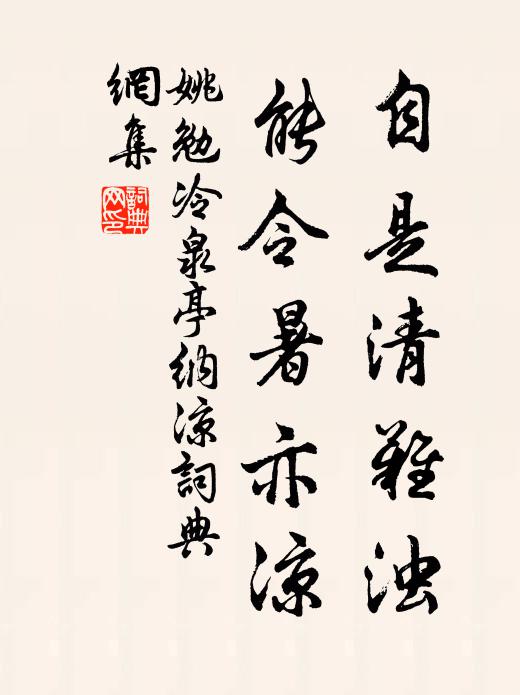 自是清難浊
能令暑亦凉
姚勉冷泉亭纳凉詞典
網集
詞典網印